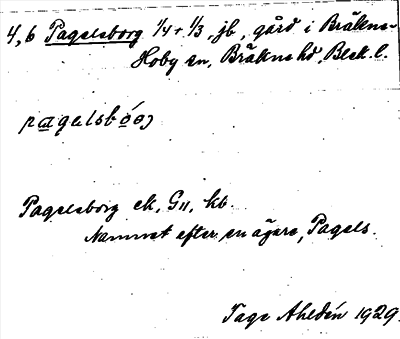 4, 6 Pagelsborg 1/4 + 1/3, jb, gård i Bräkne-
Hoby sn, Bräkne hd, Blek. l.
pagelsbórj
Pagelsborg ek, G11, kb.
Namnet efter en ägare, Pagels.
Tage Ahldén 1929.